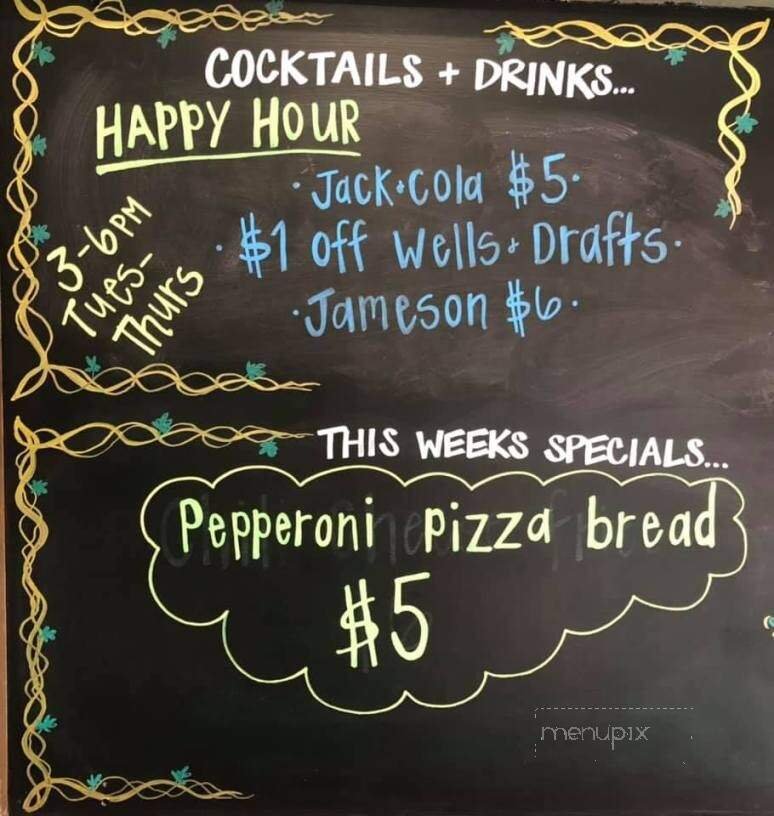 COCKTAILS + DRINKS...
HAPPY HOUR
3-6PM
Tues-
Thurs
· Jack + Cola $5 ·
· $1 off Wells + Drafts ·
· Jameson $6 ·
THIS WEEKS SPECIALS...
Pepperoni pizza bread
$5
menupix